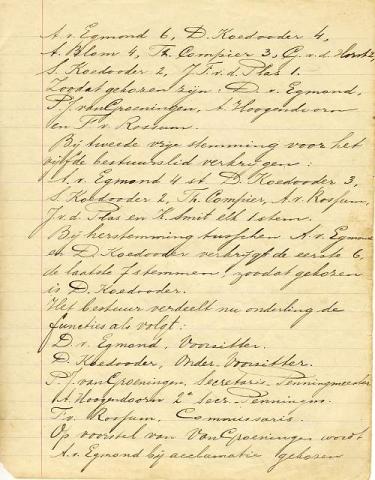 A. v. Egmond 6, D. Koedooder 4,
A. Blom 4, Th. Compier 3, G. v. d. Horst 2,
S. Koedooder 2, J. F. v. d. Plas 1.
Zoodat gekozen zijn: D. v. Egmond,
P. J. van Groeningen, A. Hoogendoorn
en F. v. Rossum.
Bij tweede vrije stemming voor het
vijfde bestuurslid verkrijgen:
A. v. Egmond 4 st D. Koedooder 3,
S. Koedooder 2, Th. Compier, A. v. Rossum,
J. v. d. Plas en K. Smit elk 1 stem.
Bij herstemming tusschen A. v. Egmond
en D. Koedooder verkrijgt de eerste 6,
de laatste 7 stemmen, zoodat gekozen
is D. Koedooder.
Het bestuur verdeelt nu onderling de
functies als volgt:
D. v. Egmond, Voorzitter.
D. Koedooder, Onder Voorzitter.
P. J. van Groeningen, Secretaris Penningmeester
A. Hoogendoorn 2e Secr. Penningm.
F. v. Rossum, Commissaris.
Op voorstel van Van Groeningen wordt
A. v. Egmond bij acclamatie gekozen